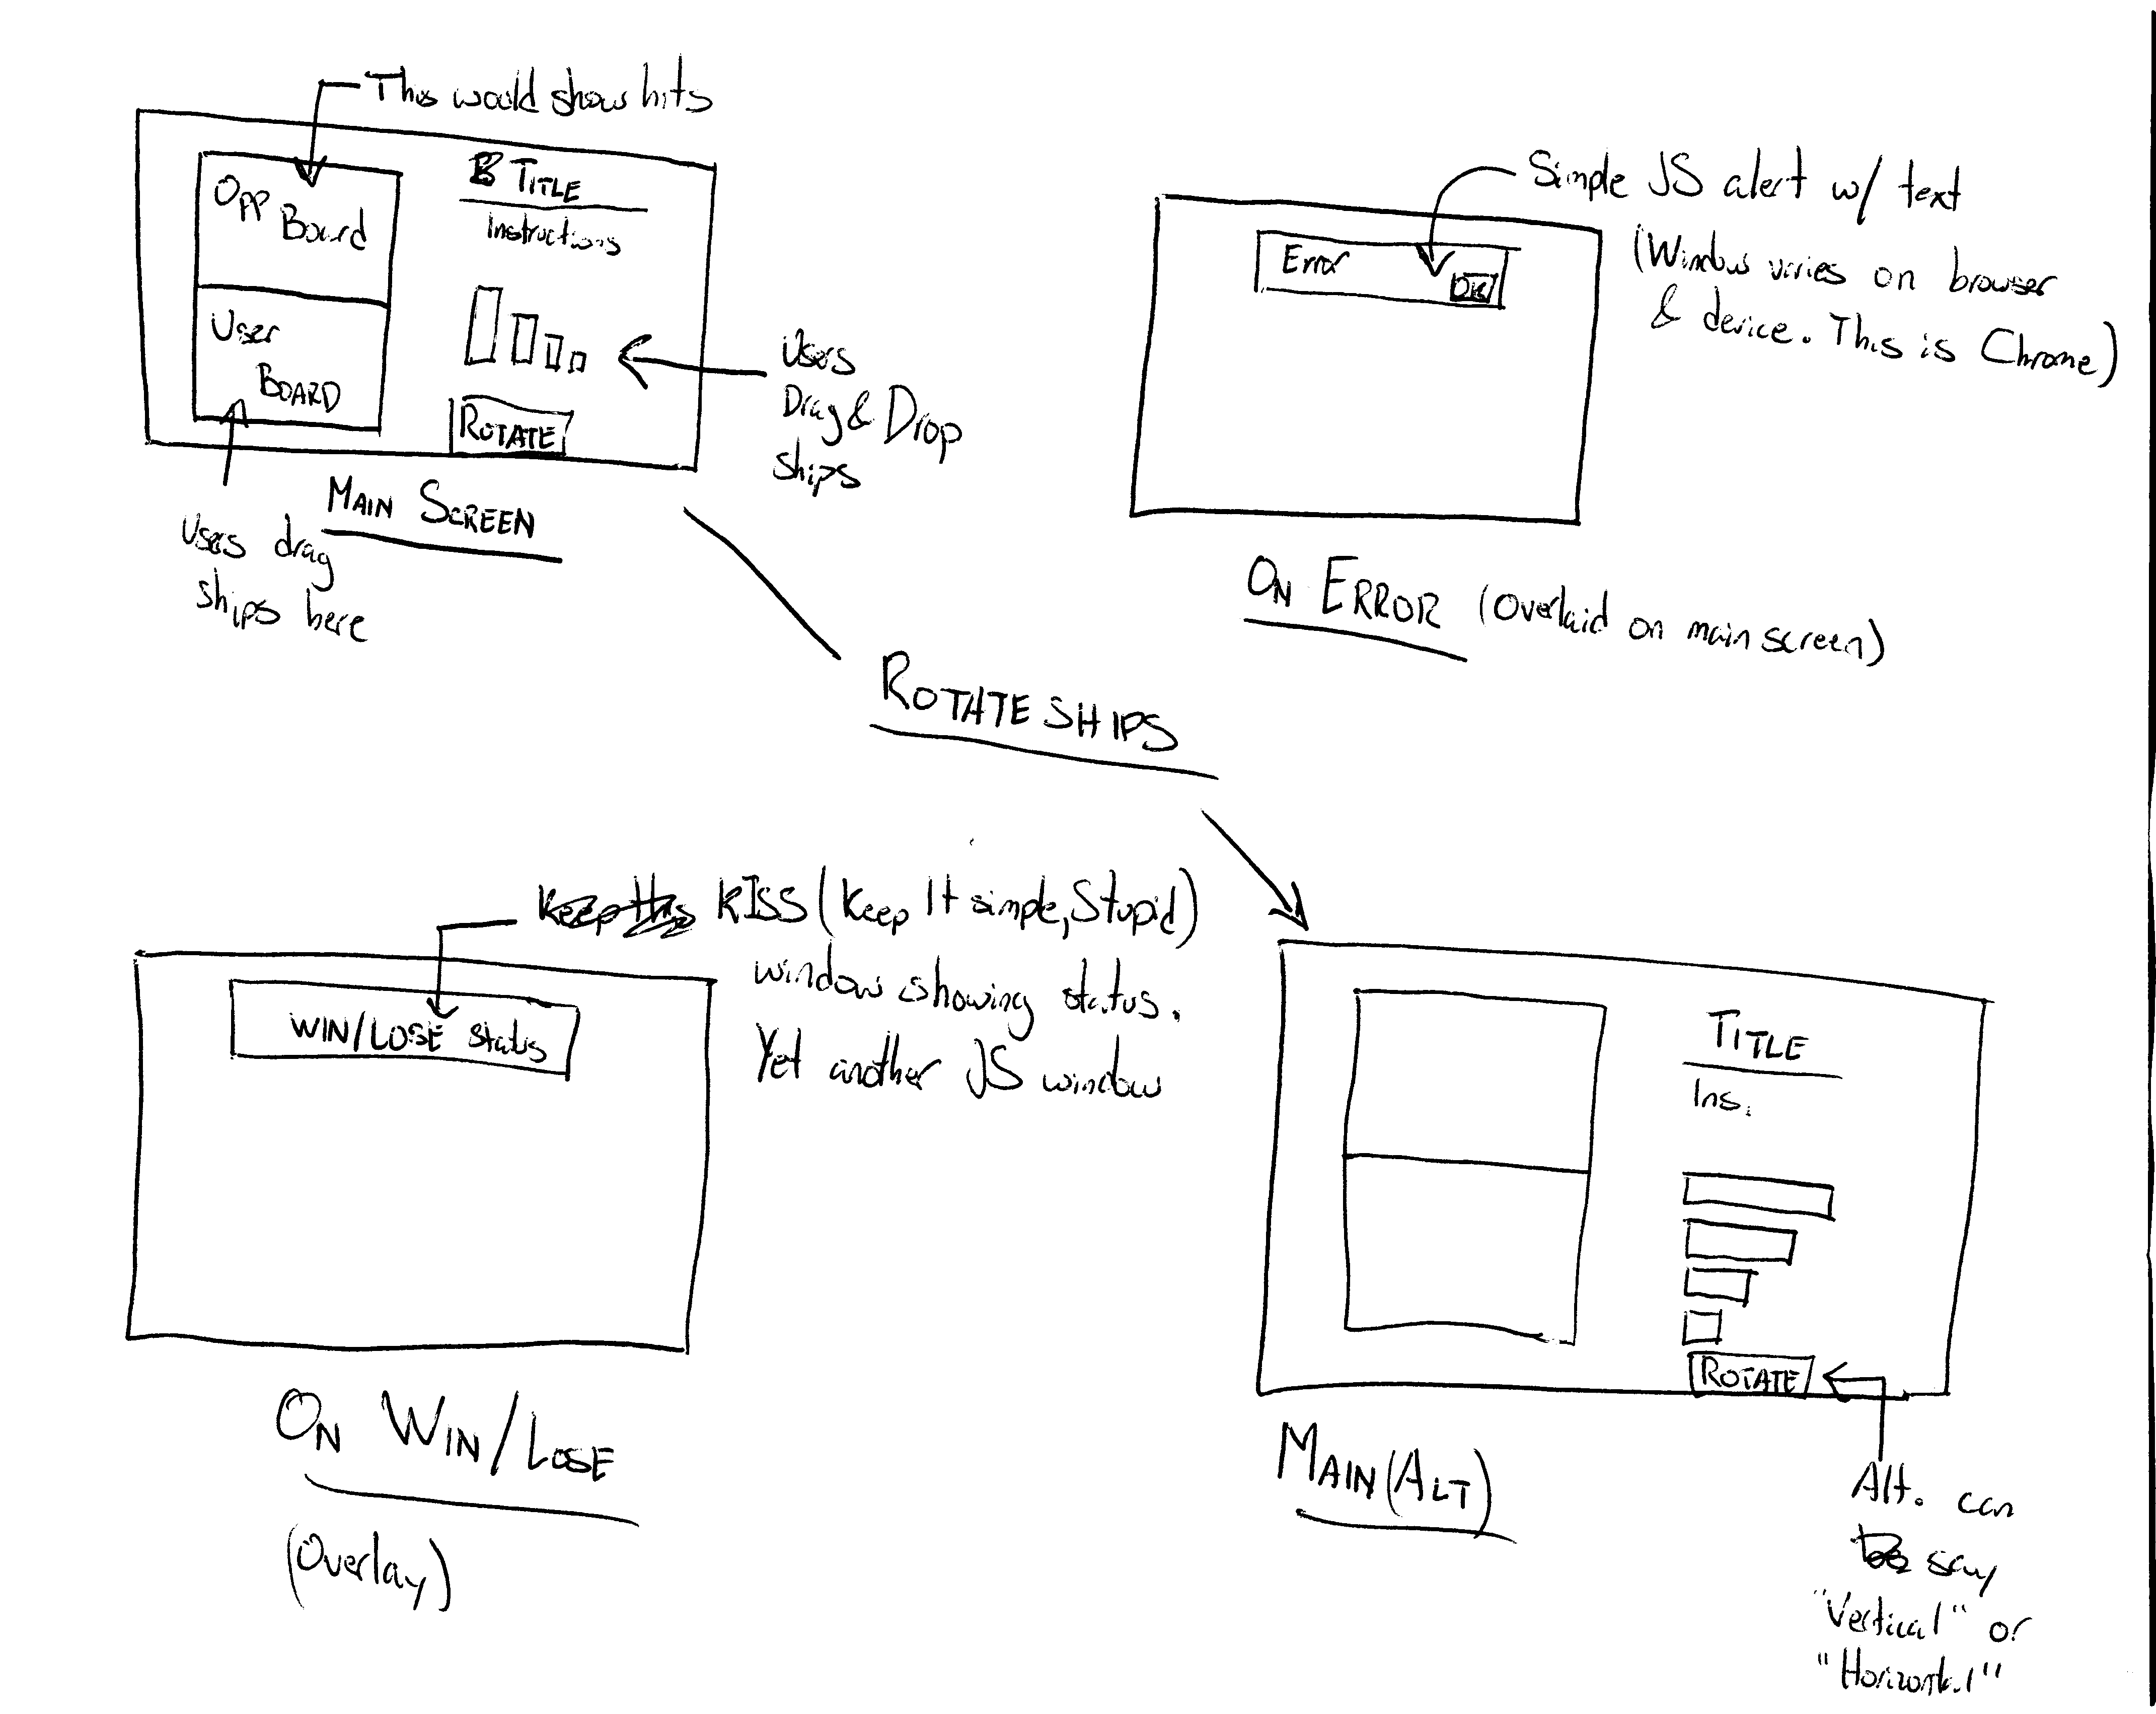 This would show hits
Opp
Board
User
BOARD
TITLE
Instructions
ROTATE
Users
Drag & Drop
ships
MAIN SCREEN
Users drag
ships here
Simple JS alert w/ text
(Window varies on browser
& device. This is Chrome)
Error
OK
ON ERROR (Overlaid on main screen)
ROTATE SHIPS
Keep this KISS (Keep It simple, Stupid)
window showing status.
Yet another JS window
WIN/LOSE Status
ON WIN/LOSE
(Overlay)
TITLE
Ins.
ROTATE
MAIN (ALT)
Alt. can
say
"Vertical" or
"Horizontal"